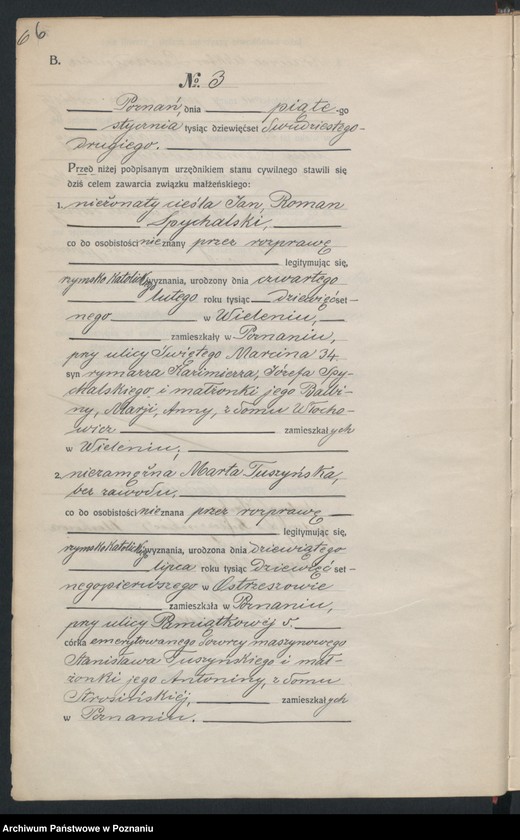 66
B.
№ 3
Poznań, dnia piąte -go
stycznia tysiąc dziewięćset dwudziestego
drugiego.
Przed niżej podpisanym urzędnikiem stanu cywilnego stawili się
dziś celem zawarcia związku małżeńskiego:
1. nieżonaty cieśla Jan, Roman
Spychalski,
co do osobistości nie znany przez rozprawę
legitymując się,
rzymsko katolickiego wyznania, urodzony dnia czwartego
lutego roku tysiąc dziewięćset-
nego w Wieleniu,
zamieszkały w Poznaniu,
przy ulicy Świętego Marcina 34.
syn rymarza Kazimierza, Józefa Spy-
chalskiego i małżonki jego Balbi-
ny, Marji, Anny, z domu Włocho-
wicz zamieszkałych
w Wieleniu;
2. niezamężna Marta Tuszyńska,
bez zawodu,
co do osobistości nie znana przez rozprawę
legitymując się,
rzymsko katolickiego wyznania, urodzona dnia dziewiątego
lipca roku tysiąc dziewięćset-
negopierwszego w Ostrzeszowie
zamieszkała w Poznaniu,
przy ulicy Pamiątkowej 5.
córka emerytowanego dozorcy maszynowego
Stanisława Tuszyńskiego i mał-
żonki jego Antoniny, z domu
Strosińskiéj, zamieszkałych
w Poznaniu.
Archiwum Państwowe w Poznaniu